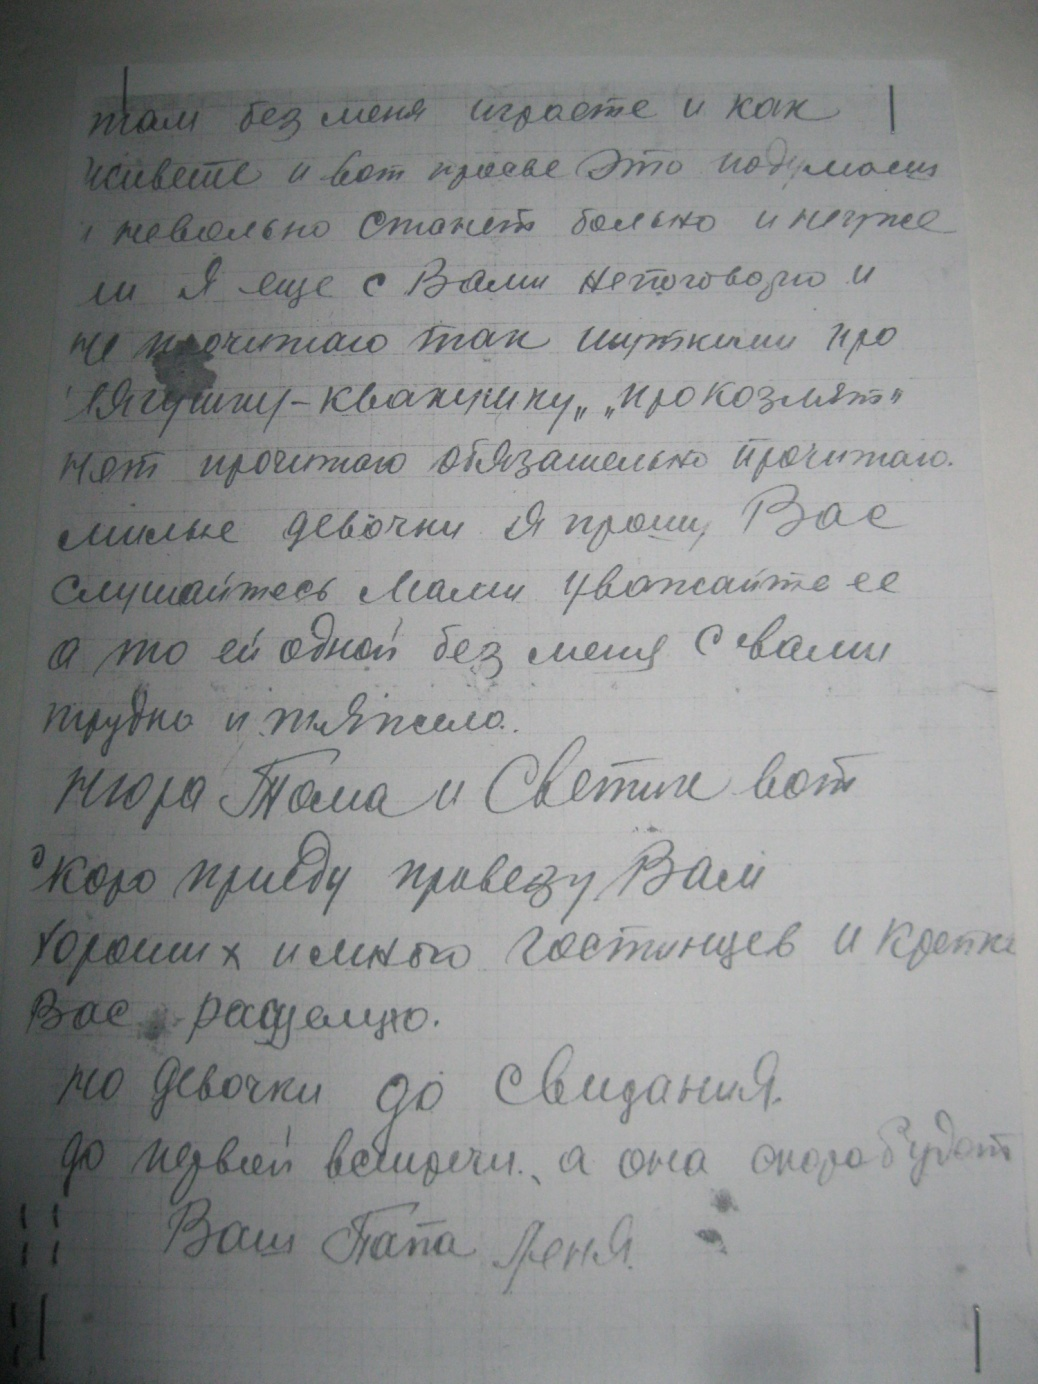 там без меня играете и как
живете и вот про все это подумаеш
и невольно станет больно и неуже
ли Я еще с Вами непоговорю и
не прочитаю так шутками про
Лягушку-квакушку„ „про козлят"
нет прочитаю обязательно прочитаю.
милые девочки Я прошу Вас
слушайтесь Мамы уважайте ее
а то ей одной без меня с вами
трудно и тяжело.
Нюра Тома и Светик вот
скоро приеду привезу Вам
хороших и много гостинцев и крепко
Вас расцелую.
но девочки до свидания.
до первой встречи. а она скоро будет
Ваш Папа Леня.